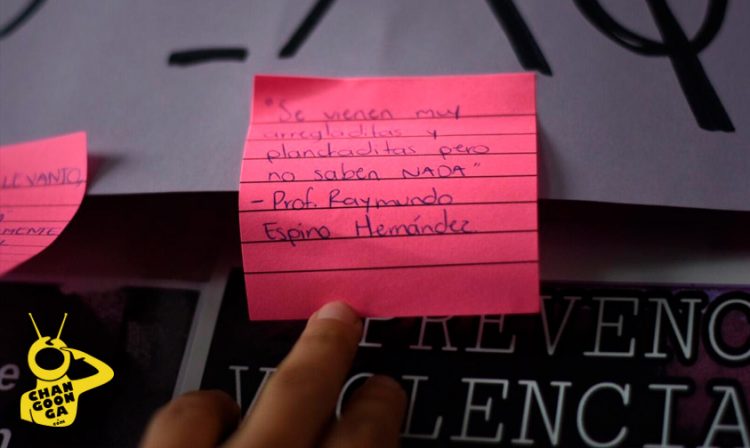 "Se vienen muy
arregladitas y
planchaditas pero
no saben NADA"
- Prof. Raymundo
Espino Hernández
LEVANTO,
PREVENC
VIOLENCIA
CHAN
GOON
GA
.com